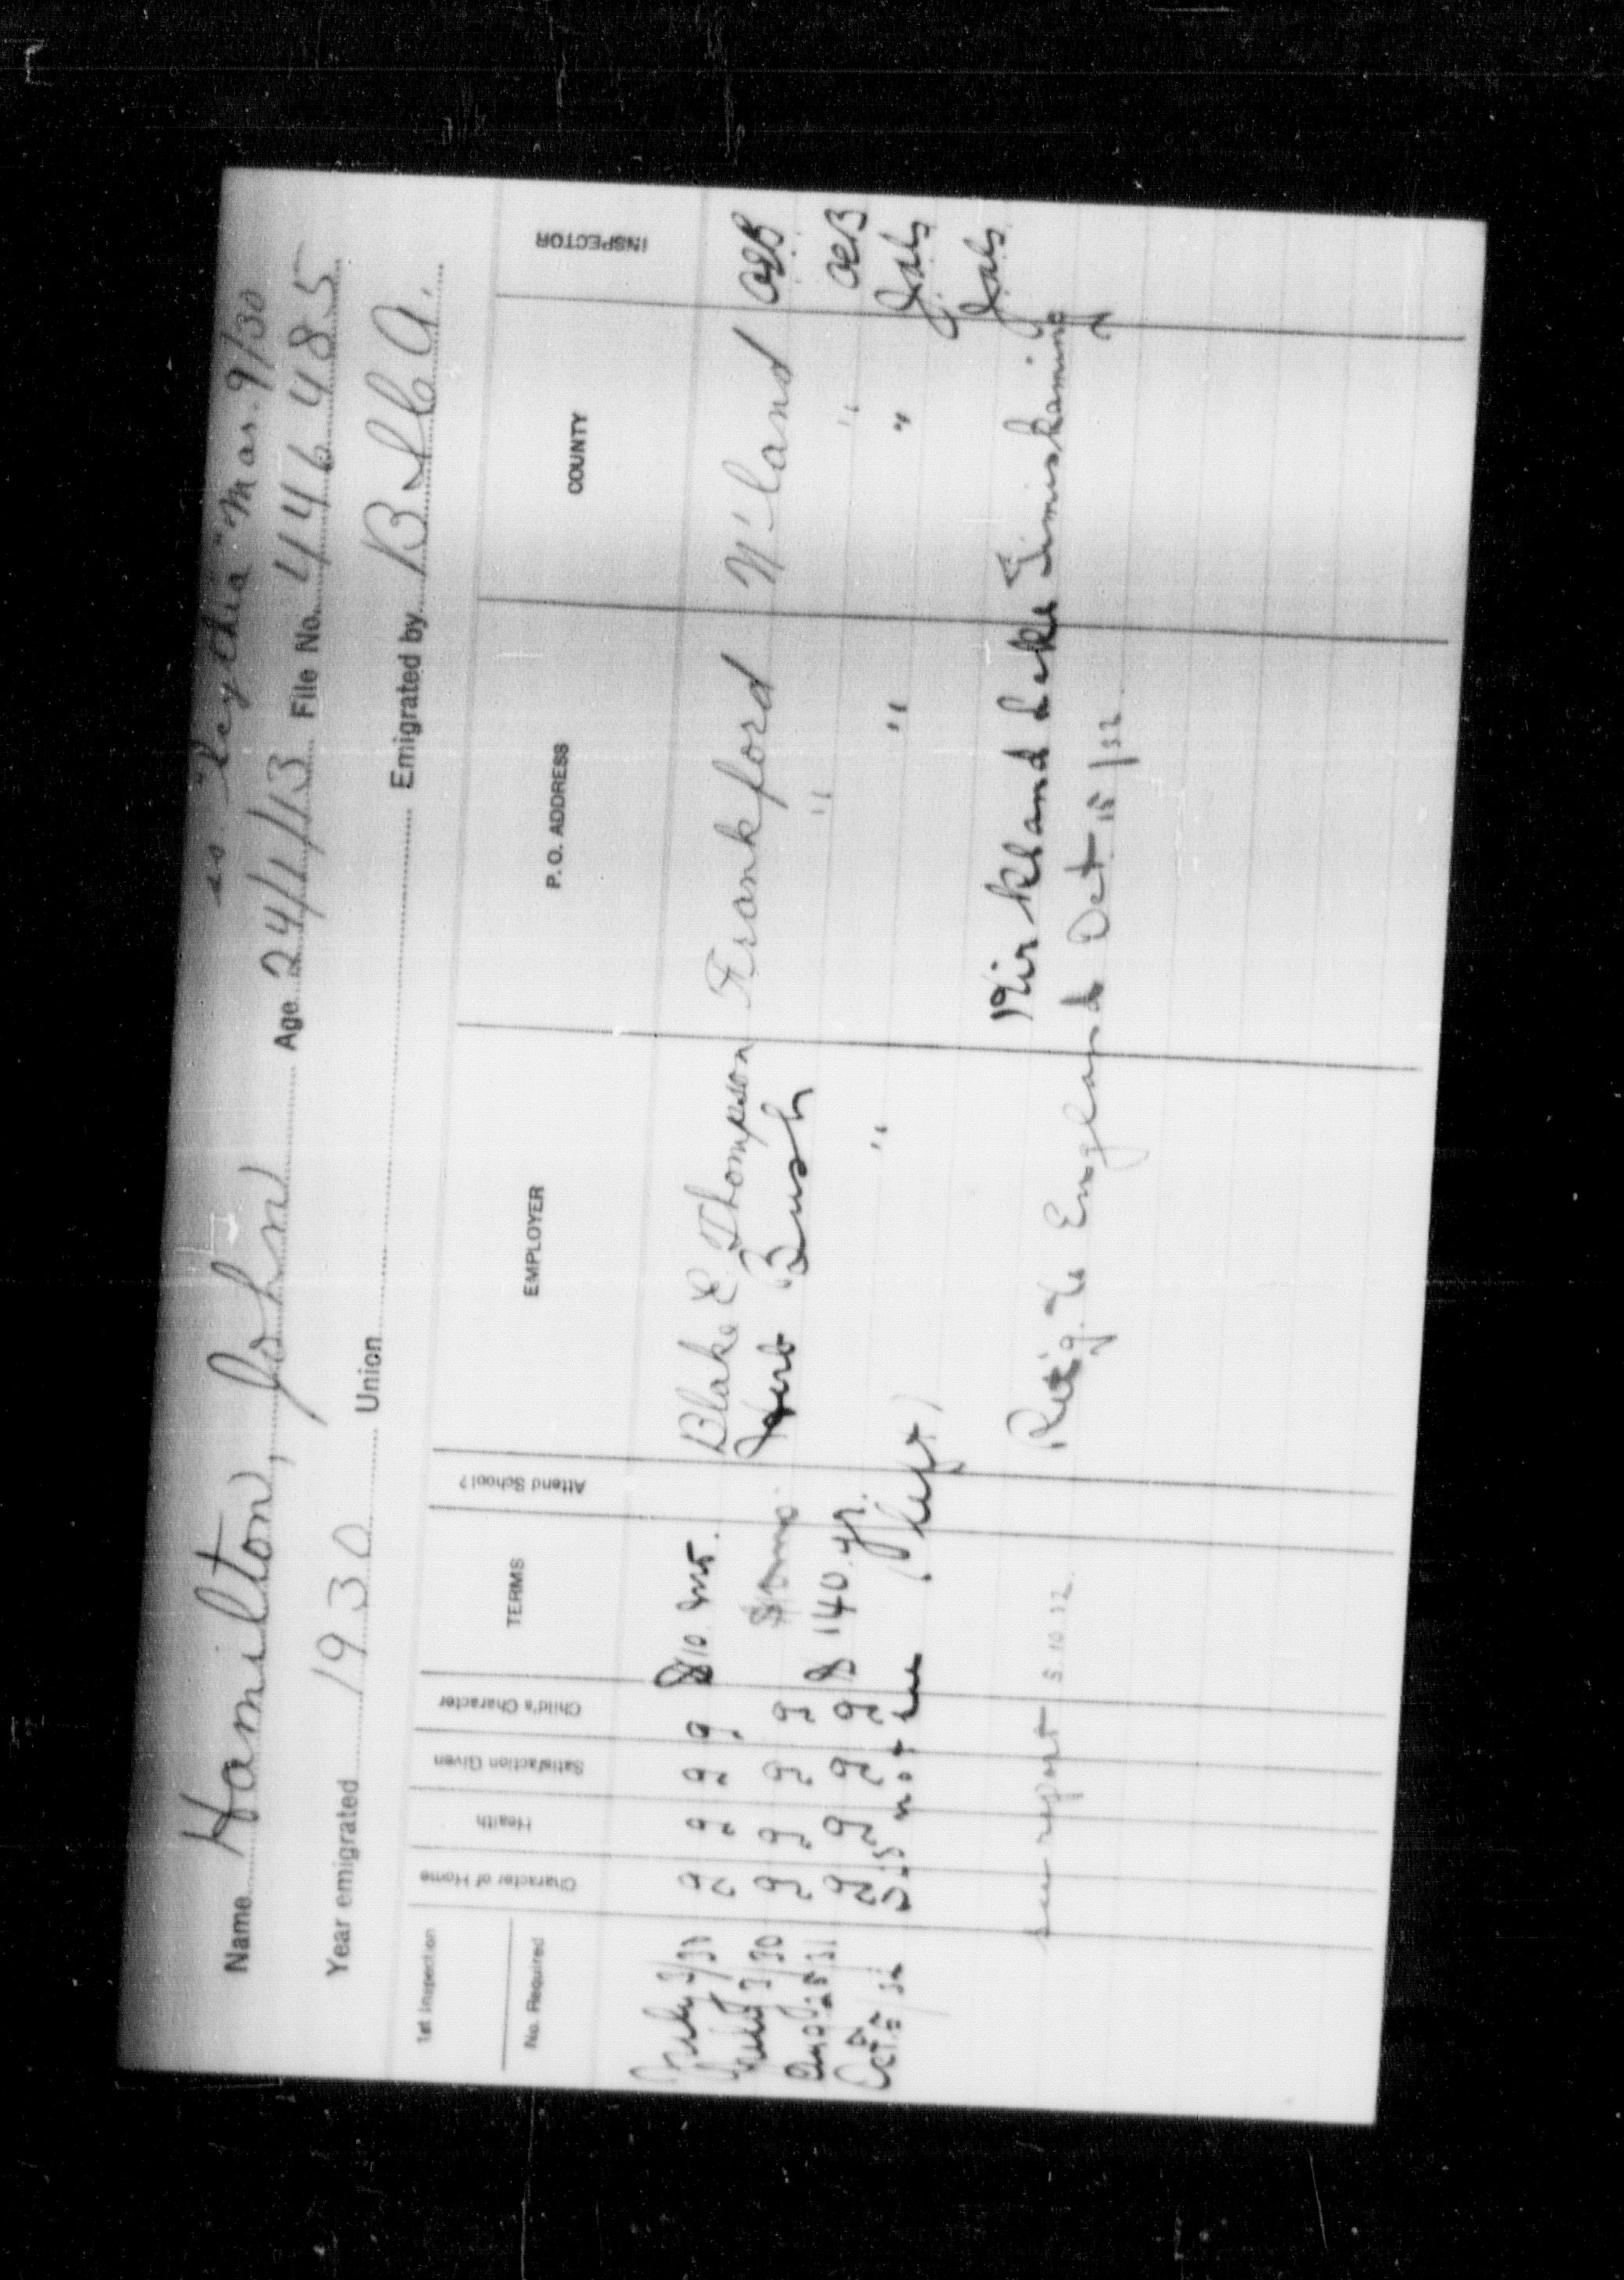 ss. "Scythia" Mar. 9/30
Name Hamilton, John Age 24/1/13 File No. 446485
Year emigrated 1930 Union Emigrated by B.I.C.A.
1st Inspection
No. Required
Character of Home Health Satisfaction Given Child's Character TERMS Attend School? EMPLOYER P. O. ADDRESS COUNTY INSPECTOR
July 3/30 g g g g $10 mt. Blake E Thompson Frankford N'land
July 3/30 g g g g Herb Bush " " OEB
31 g g g g $140 yr. " " "
Oct 32 Did not see (left)
Kirkland Lake Timiskaming
see report 5.10.32. Ret'g. to England Oct 15/32.